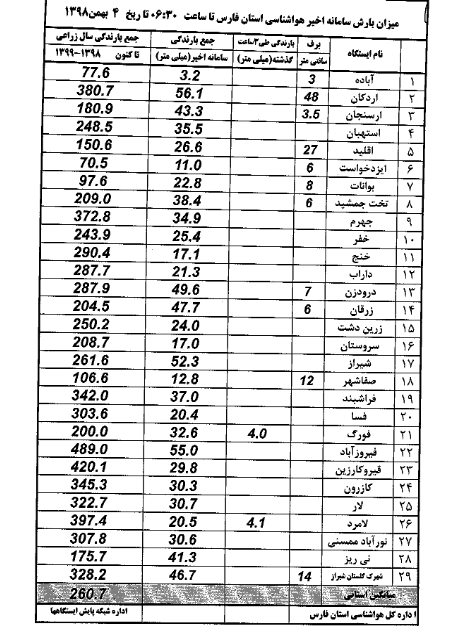 میزان بارش سامانه اخیر هواشناسی استان فارس تا ساعت ۰۶:۳۰ تا ریخ ۴ بهمن ۱۳۹۸
نام ایستگاه برف سانتی متر بارندگی طی ۳ساعت گذشته(میلی متر) جمع بارندگی سامانه اخیر(میلی متر) جمع بارندگی سال زراعی تا کنون ۱۳۹۸-۱۳۹۹
۱ آباده 3 3.2 77.6
۲ اردکان 48 56.1 380.7
۳ ارسنجان 3.5 43.3 180.9
۴ استهبان 35.5 248.5
۵ اقلید 27 26.6 150.6
۶ ایزدخواست 6 11.0 70.5
۷ بوانات 8 22.8 97.6
۸ تخت جمشید 6 38.4 209.0
۹ جهرم 34.9 372.8
۱۰ خفر 25.4 243.9
۱۱ خنج 17.1 290.4
۱۲ داراب 21.3 287.7
۱۳ درودزن 7 49.6 287.9
۱۴ زرقان 6 47.7 204.5
۱۵ زرین دشت 24.0 250.2
۱۶ سروستان 17.0 208.7
۱۷ شیراز 52.3 261.6
۱۸ صفاشهر 12 12.8 106.6
۱۹ فراشبند 37.0 342.0
۲۰ فسا 20.4 303.6
۲۱ فورگ 4.0 32.6 200.0
۲۲ فیروزآباد 55.0 489.0
۲۳ قیروکارزین 29.8 420.1
۲۴ کازرون 30.3 345.3
۲۵ لار 30.7 322.7
۲۶ لامرد 4.1 20.5 397.4
۲۷ نورآباد ممسنی 30.6 307.8
۲۸ نی ریز 41.3 175.7
۲۹ شهرک گلستان شیراز 14 46.7 328.2
میانگین استانی 260.7
ا داره کل هواشناسی استان فارس اداره شبکه پایش ایستگاهها